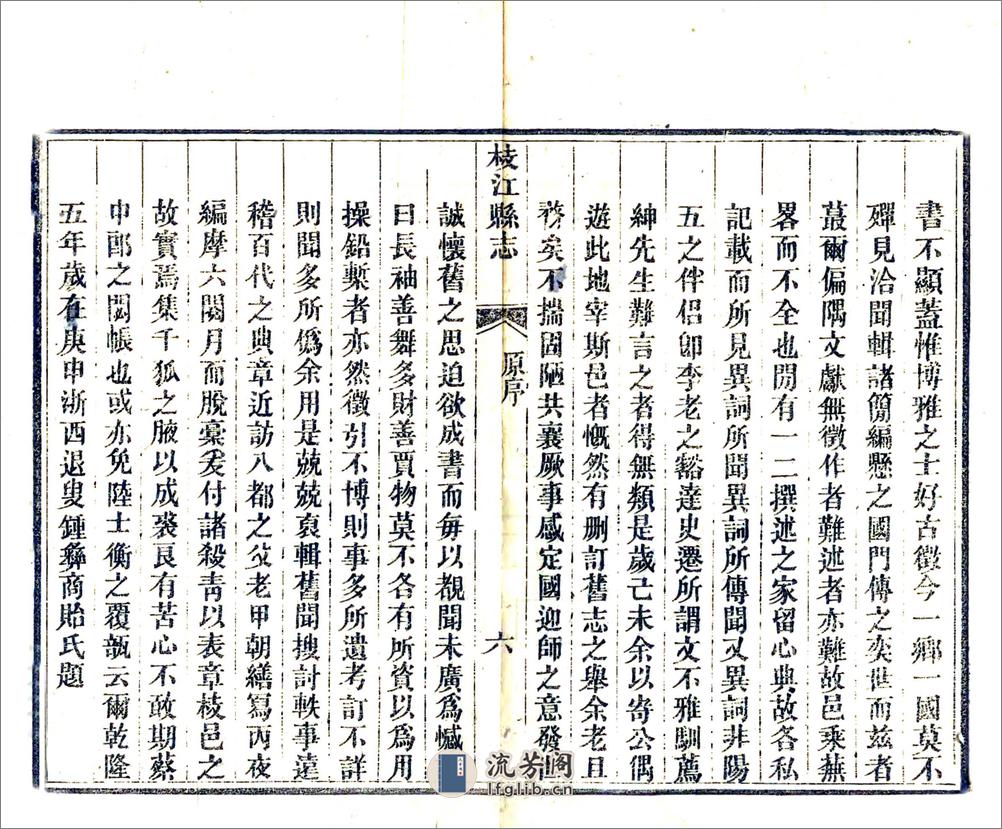 書不顯蓋惟博雅之士好古徵今一鄉一國莫不
殫見洽聞輯諸簡編懸之國門傳之奕世而茲者
蕞爾偏隅文獻無徵作者難述者亦難故邑乘蕪
畧而不全也閒有一二撰述之家留心典故各私
記載而所見異詞所聞異詞所傳聞又異詞非陽
五之伴侶卽李老之豁達史遷所謂文不雅馴薦
紳先生難言之者得無類是歲己未余以寄公偶
遊此地宰斯邑者慨然有删訂舊志之舉余老且
務矣不揣固陋共襄厥事感定國迎師之意發
枝江縣志
原序
六
誠懷舊之思迫欲成書而每以覩聞未廣爲憾
曰長袖善舞多財善賈物莫不各有所資以爲用
操鉛槧者亦然徵引不博則事多所遺考訂不詳
則聞多所僞余用是兢兢裒輯舊聞搜討軼事遠
稽百代之典章近訪八都之父老甲朝繕寫丙夜
編摩六閱月而脫稾爰付諸殺靑以表章枝邑之
故實焉集千狐之腋以成裘良有苦心不敢期蔡
中郎之閟帳也或亦免陸士衡之覆瓿云爾乾隆
五年歲在庚申浙西退叟鍾彝商貽氏題
流芳阁
lfglib.cn